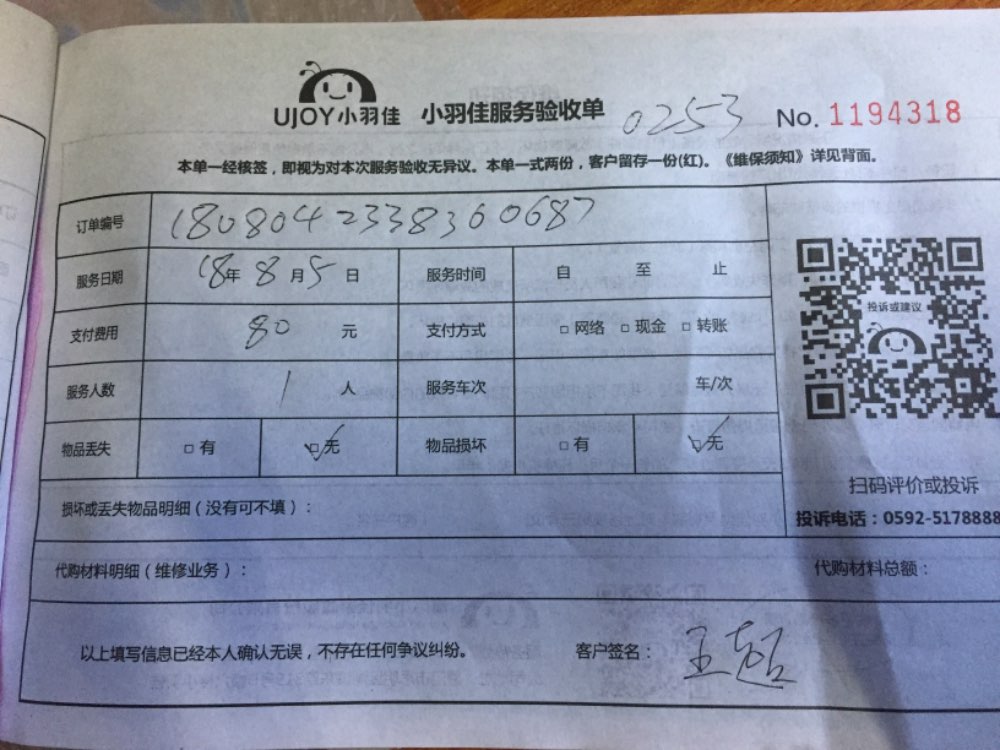 UJOY小羽佳 小羽佳服务验收单 0253 No. 1194318
本单一经核签，即视为对本次服务验收无异议。本单一式两份，客户留存一份(红)。《维保须知》详见背面。
订单编号 1808042338360687
服务日期 18年8月5日 服务时间 自 至 止
支付费用 80 元 支付方式 □网络 □现金 □转账
服务人数 1 人 服务车次 车/次
物品丢失 □有 ☑无 物品损坏 □有 ☑无
投诉或建议
扫码评价或投诉
投诉电话：0592-5178888
损坏或丢失物品明细（没有可不填）：
代购材料明细（维修业务）： 代购材料总额：
以上填写信息已经本人确认无误，不存在任何争议纠纷。 客户签名：王超